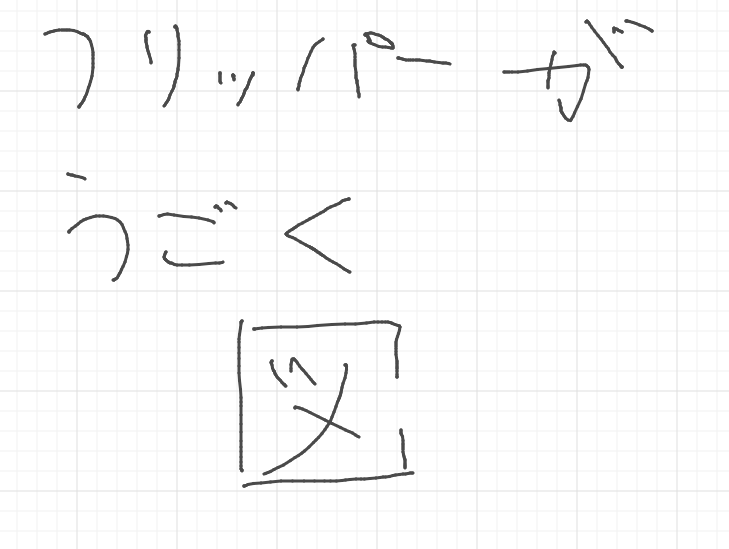 フリッパーが
うごく
図